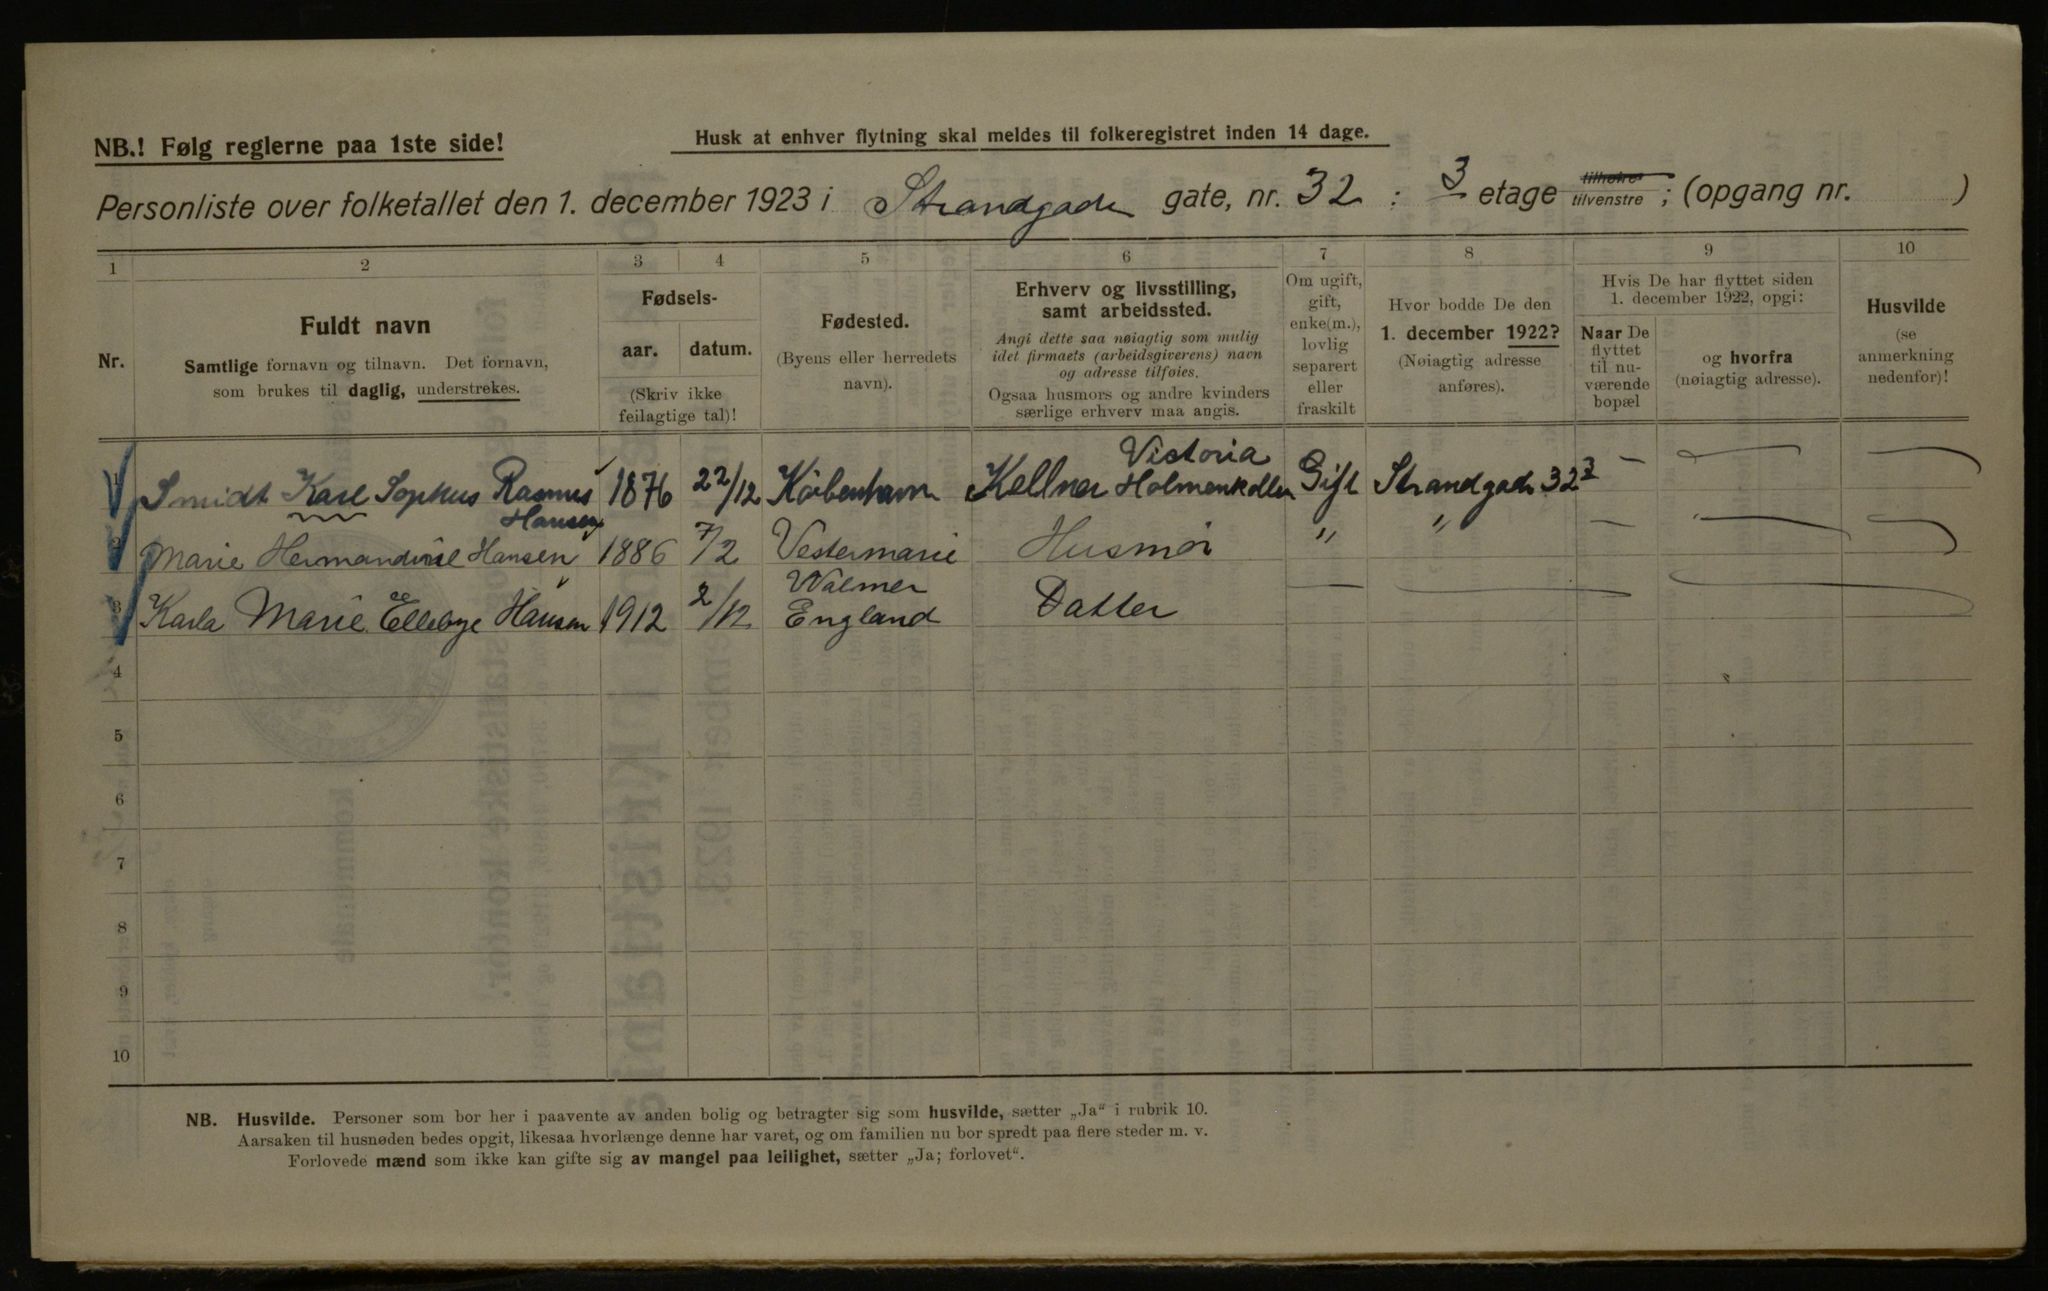 NB.! Følg reglerne paa 1ste side!
Husk at enhver flytning skal meldes til folkeregistret inden 14 dage.
Personliste over folketallet den 1. december 1923 i Strandgade gate, nr. 32 : 3 etage tilhøire tilvenstre ; (opgang nr. )
1 2 3 4 5 6 7 8 9 10
Nr.
Fuldt navn
Samtlige fornavn og tilnavn. Det fornavn,
som brukes til daglig, understrekes.
Fødsels-
aar. datum.
(Skriv ikke
feilagtige tal)!
Fødested.
(Byens eller herredets
navn).
Erhverv og livsstilling,
samt arbeidssted.
Angi dette saa nøiagtig som mulig
idet firmaets (arbeidsgiverens) navn
og adresse tilføies.
Ogsaa husmors og andre kvinders
særlige erhverv maa angis.
Om ugift,
gift,
enke(m.),
lovlig
separert
eller
fraskilt
Hvor bodde De den
1. december 1922?
(Nøiagtig adresse
anføres).
Hvis De har flyttet siden
1. december 1922, opgi:
Naar De
flyttet
til nu-
værende
bopæl
og hvorfra
(nøiagtig adresse).
Husvilde
(se
anmerkning
nedenfor)!
Victoria
1 Smidt Karl Sophus Rasmus 1876 22/12 Köibenhavn Kellner Holmenkollen Gift Strandgade 32 3 — — —
Hansen
2 Marie Hansen 1886 7/2 Vestermarie Husmor " " — — —
Walmer
3 Karla Marie Ellebye Hansen 1912 2/12 England Datter — — —
4
5
6
7
8
9
10
NB. Husvilde. Personer som bor her i paavente av anden bolig og betragter sig som husvilde, sætter „Ja“ i rubrik 10.
Aarsaken til husnøden bedes opgit, likesaa hvorlænge denne har varet, og om familien nu bor spredt paa flere steder m. v.
Forlovede mænd som ikke kan gifte sig av mangel paa leilighet, sætter „Ja; forlovet“.